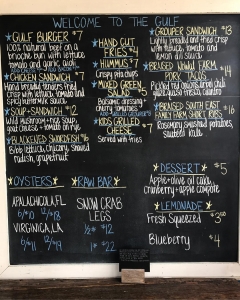 WELCOME TO THE GULF
GULF BURGER $7
100% natural beef on
a brioche bun with lettuce
tomato and onion
CHICKEN SANDWICH $7
Hand breaded tenders, fried
crisp w/ lettuce, tomato and
spicy buttermilk sauce
SOUP + SANDWICH $12
Wild mushroom + rice soup,
goat cheese + tomato on rye
BLACKENED SWORDFISH $16
Bibb lettuce, chicory, shaved
radish, grapefruit
HAND CUT
FRIES $4
HUMMUS $7
Crispy pita chips
MIXED GREEN
SALAD $5
Balsamic dressing
KIDS GRILLED
CHEESE $7
Served with fries
GROUPER SANDWICH $13
Lightly breaded and fried crisp
with lettuce, tomato and
lemon aioli sauce
PORK TACOS $14
BRAISED SOUTH EAST
FAMILY FARM SHORT RIBS $16
OYSTERS
APALACHICOLA, FL
6/$10 12/$18
VIRGINICA, LA
6/$11 12/$19
RAW BAR
SNOW CRAB
LEGS
1/2# $12
1# $22
DESSERT $5
Apple + olive oil cake,
Cranberry + apple compote
LEMONADE
Fresh Squeezed $3.50
Blueberry $4